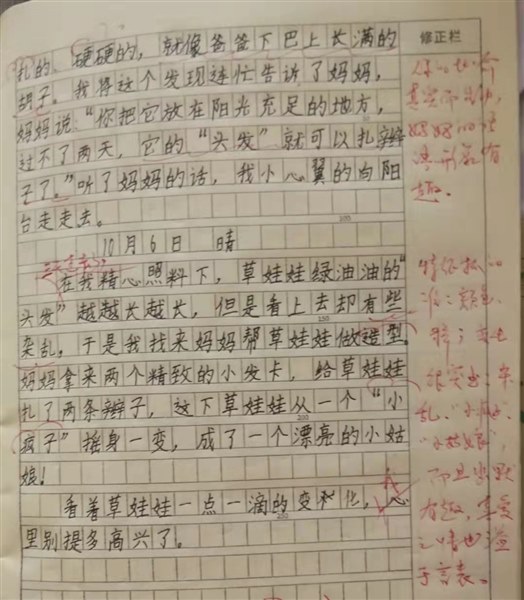 扎的、硬硬的，就像爸爸下巴上长满的
修正栏
胡子。我将这个发现连忙告诉了妈妈，
妈妈说："你把它放在阳光充足的地方，
过不了两天，它的"头发"就可以扎辫
子了。"听了妈妈的话，我小心翼的向阳
台走走去。
趣。
10月6日 晴
在我精心照料下，草娃娃绿油油的"
头发"越越长越长，但是看上去却有些
杂乱。于是我找来妈妈帮草娃娃做造型。
妈妈拿来两个精致的小发卡，给草娃娃
扎了两条辫子，这下草娃娃从一个"小
疯子"摇身一变，成了一个漂亮的小姑
娘！
看着草娃娃一点一滴的变化，心
里别提多高兴了。
而且幽默
有趣，喜爱
之情也溢
于言表。